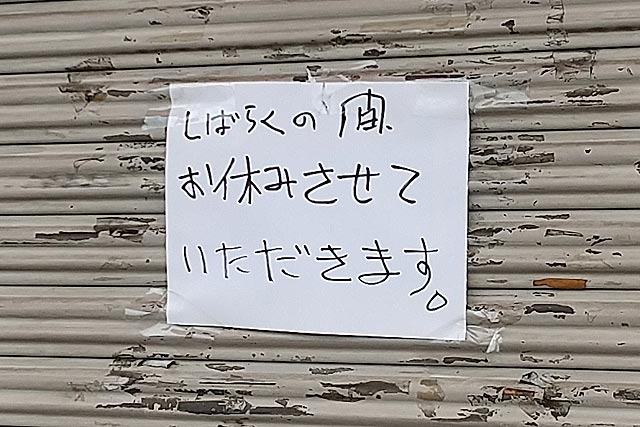 しばらくの間、
お休みさせて
いただきます。